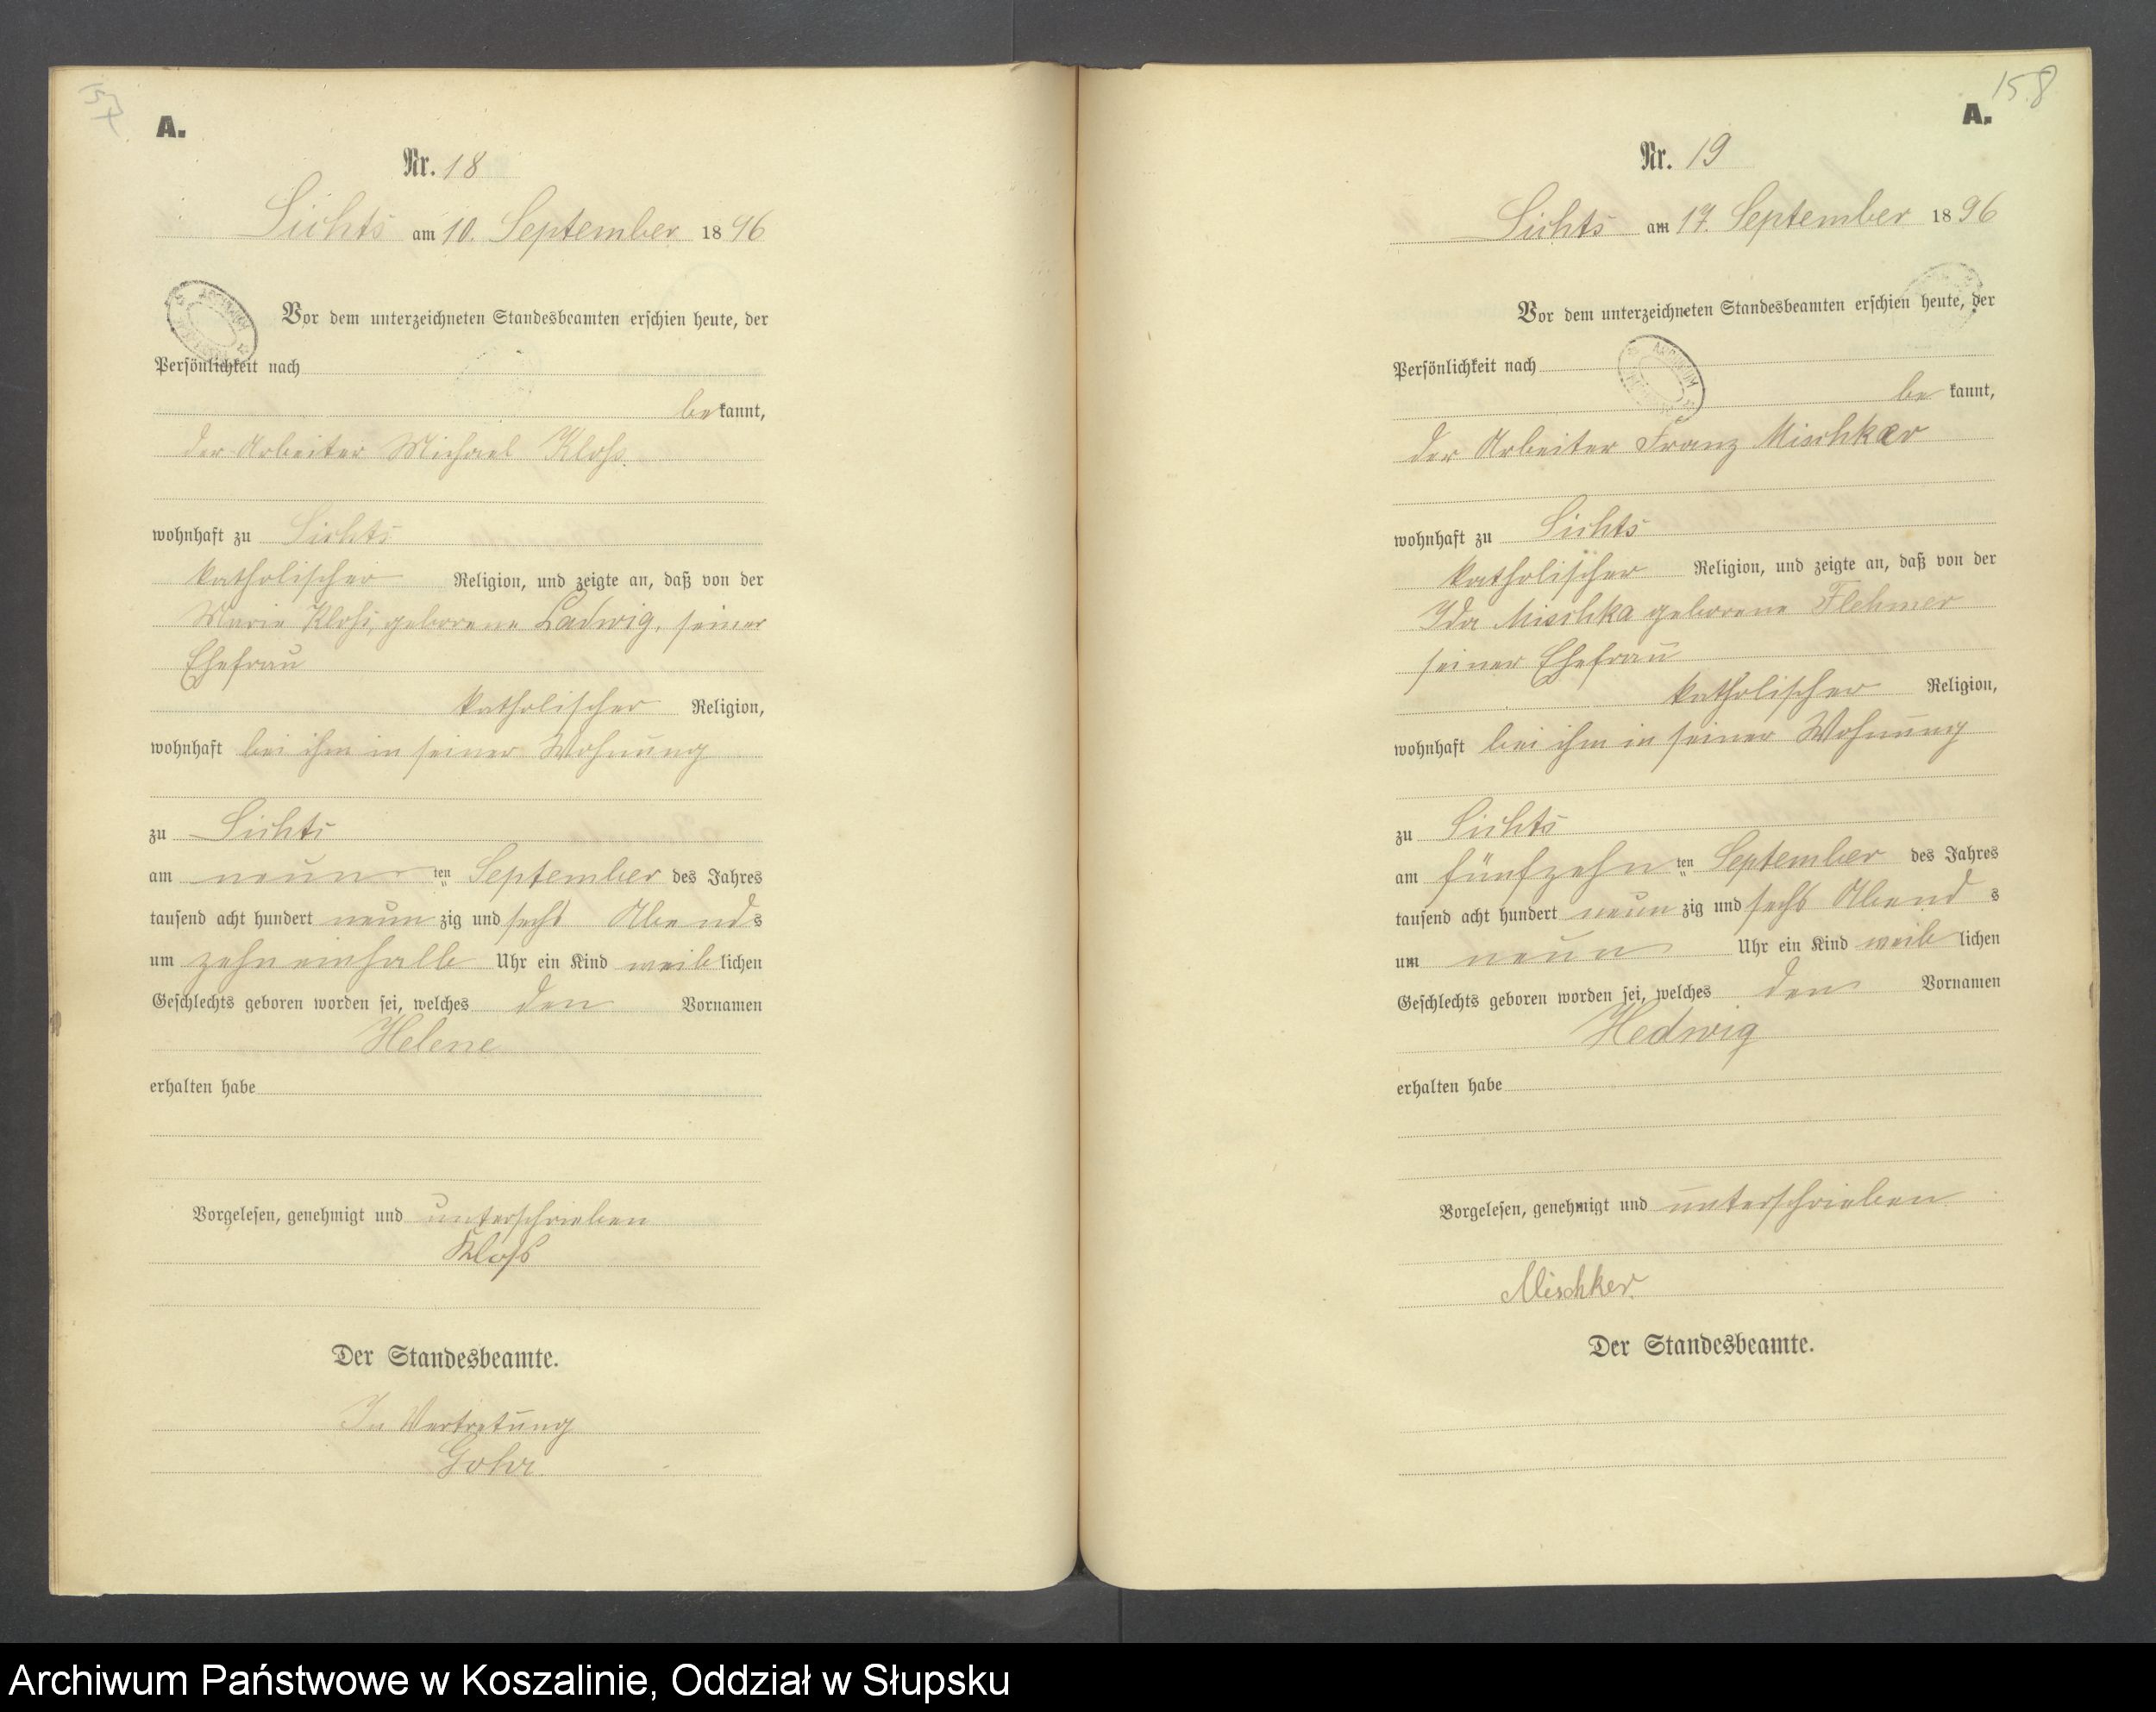 157
A.
Nr. 18
Lichts am 10. September 1896
Vor dem unterzeichneten Standesbeamten erschien heute, der
Persönlichkeit nach
bekannt,
der Arbeiter Michael Kloß
wohnhaft zu Lichts
katholischer Religion, und zeigte an, daß von der
Marie Kloß, geborene Ladwig, seiner
Ehefrau
katholischer Religion,
wohnhaft bei ihm in seiner Wohnung
zu Lichts
am neun ten September des Jahres
tausend acht hundert neun zig und sechs Abends
um zehn einhalb Uhr ein Kind weiblichen
Geschlechts geboren worden sei, welches den Vornamen
Helene
erhalten habe
Vorgelesen, genehmigt und unterschrieben
Kloß
Der Standesbeamte.
In Vertretung
Gohr
158
A.
Nr. 19
Lichts am 17. September 1896
Vor dem unterzeichneten Standesbeamten erschien heute, der
Persönlichkeit nach
ARCHIWUM
be kannt,
der Arbeiter Franz Mischker
wohnhaft zu Lichts
katholischer Religion, und zeigte an, daß von der
Ida Mischka geborene Flehmer
seiner Ehefrau
katholischer Religion,
wohnhaft bei ihm in seiner Wohnung
zu Lichts
am fünfzehn ten September des Jahres
tausend acht hundert neun zig und sechs Abend s
um neun Uhr ein Kind weib lichen
Geschlechts geboren worden sei, welches den Vornamen
Hedwig
erhalten habe
Vorgelesen, genehmigt und unterschrieben
Mischker.
Der Standesbeamte.
Archiwum Państwowe w Koszalinie, Oddział w Słupsku